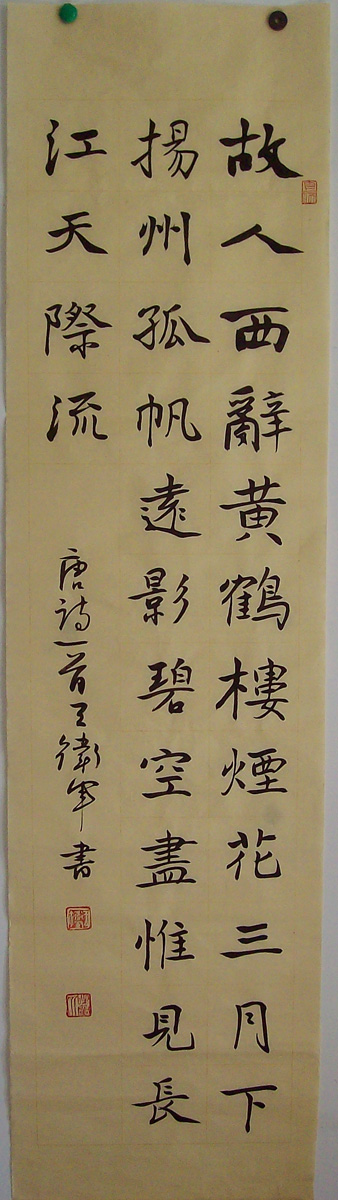 故人西辭黄鶴樓煙花三月下
揚州孤帆遠影碧空盡惟見長
江天際流
唐詩一首王衛軍書